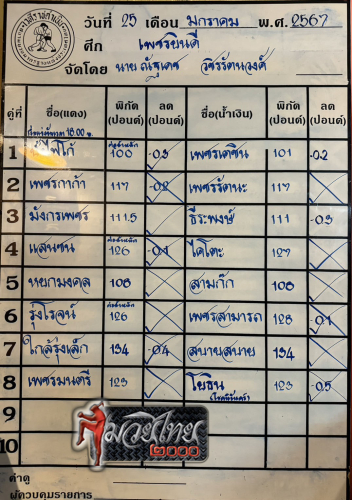 วันที่ 25 เดือน มกราคม พ.ศ. 2567
ศึก เพชรยินดี
จัดโดย นาย ณัฐเดช วชิรรัตนวงศ์
คู่ที่ ชื่อ(แดง) พิกัด (ปอนด์) ลด (ปอนด์) ชื่อ(น้ำเงิน) พิกัด (ปอนด์) ลด (ปอนด์)
18.00 น.
1 100 -0.3 เพชรเตชิน 101 -0.2
2 เพชรกาก้า 117 -0.2 เพชรรัตนะ 117
3 มังกรเพชร 111.5 ธีระพงษ์ 111 -0.3
4 แสนซน 126 -0.1 ไคโตะ 127
5 หยกมงคล 108 สามก๊ก 108
6 รุ่งโรจน์ 126 เพชรสามารถ 128 -0.1
7 ใกล้รุ่งเล็ก 134 -0.4 สบายสบาย 134
8 เพชรมนตรี 123 โยธิน 123 -0.5
9
10
มวยไทย
2000
ค่าดู
ผู้ควบคุมรายการ